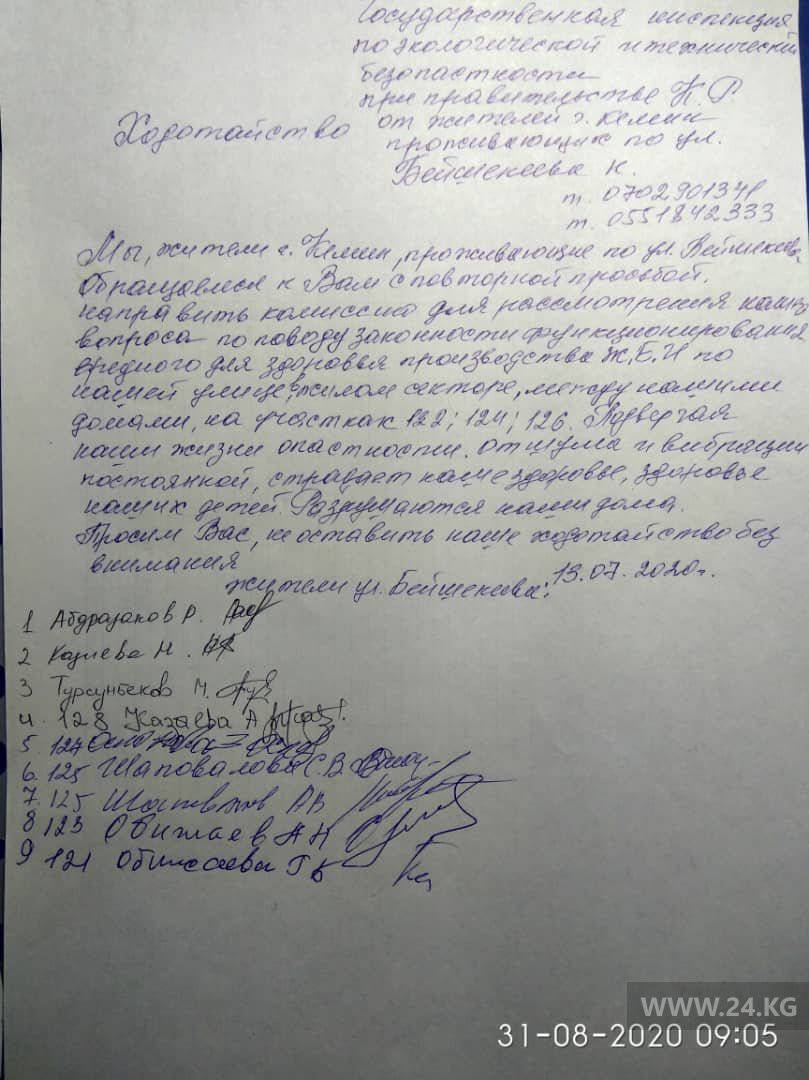 Государственная инспекция
по экологической и технический
безопастности
при правительстве К.Р.
Ходотайство от жителей г. Кемин
проживающих по ул.
Бейшекеева К.
т. 0702901341
т. 0551842333
Мы, жители г. Кемин, проживающие по ул. Бейшекеева
Обращаемся к Вам с повторной просьбой.
направить комиссию для рассмотрения наших
вопроса по поводу законности функционирования
вредного для здоровья производства Ж.Б.И по
нашей улице, жилом секторе, между нашими
домами, на участках 122; 124; 126. Подвергая
наши жизни опастности. От шума и вибрации
постоянной, страдает наше здоровье, здоровье
наших детей. Разрушаются наши дома.
Просим Вас, не оставить наше ходотайство без
внимания
жители ул. Бейшекеева: 13.07.2020г.
1 Абдразаков Р.
2 Казиева Н.
3 Турсунбеков М.
4. 128 Казаева А
5. 127
6. 125 Шаповалова С.В.
7. 125 Шаповалов АВ
8 123 Обижаев АН
9 121 Обижаева Г Б
WWW.24.KG
31-08-2020 09:05